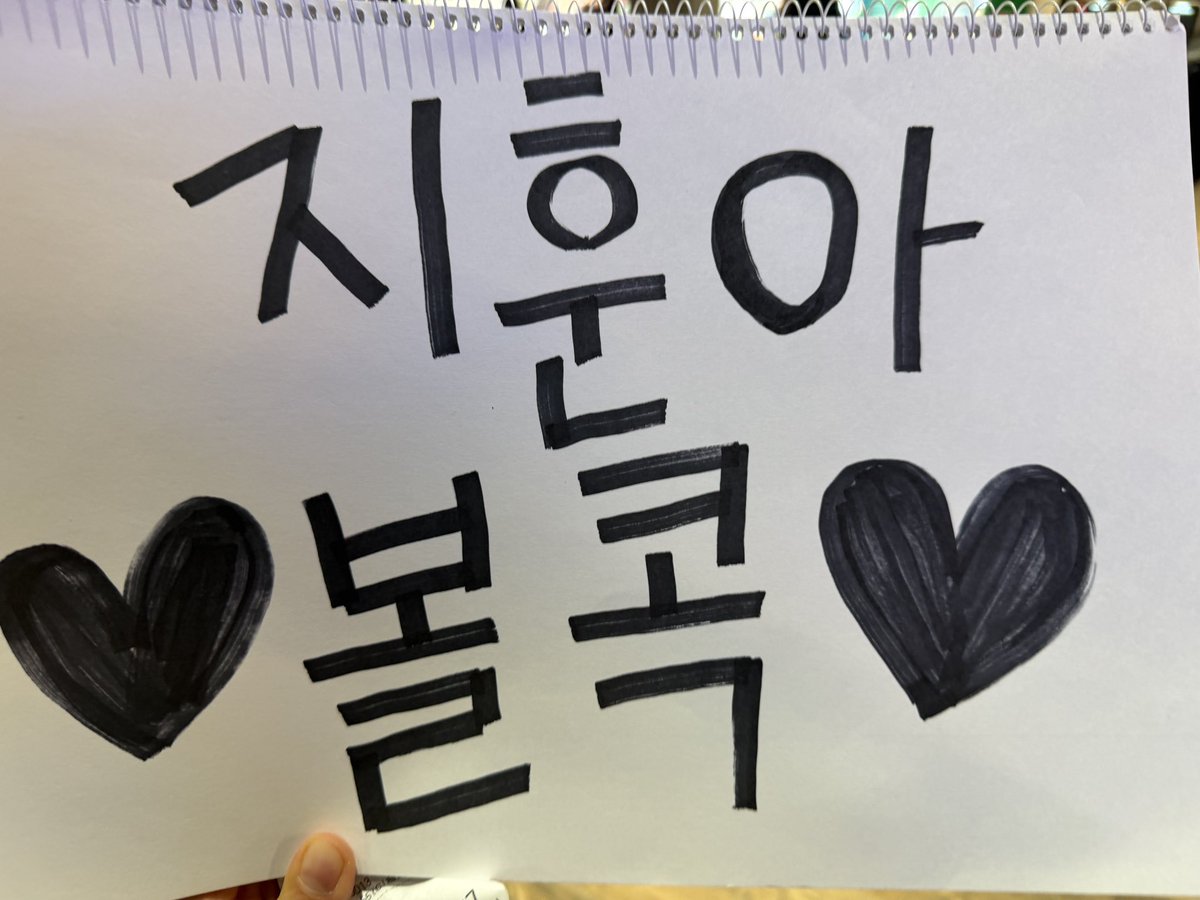 지훈아
♥볼콕♥